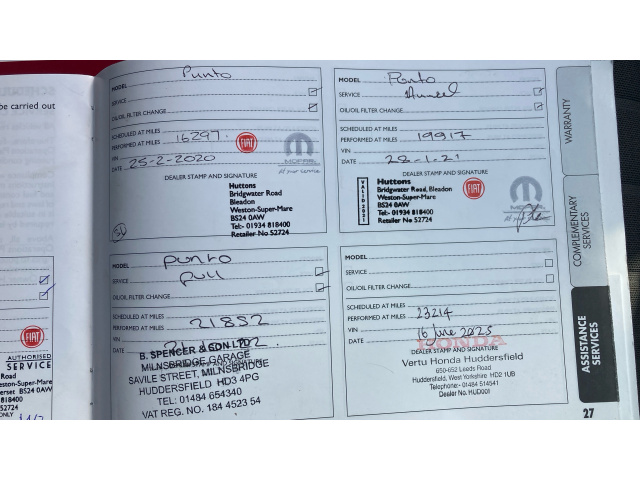 be carried out
AUTHORISED
SERVICE
Road
Weston-Super-Mare
erset BS24 0AW
818400
52724
ONLY
MODEL Punto
SERVICE
OIL/OIL FILTER CHANGE
SCHEDULED AT MILES
PERFORMED AT MILES 16297
VIN
DATE 25-2-2020
FIAT
MOPAR
DEALER STAMP AND SIGNATURE
Huttons
Bridgwater Road
Bleadon
Weston-Super-Mare
BS24 0AW
Tel:- 01934 818400
Retailer No 52724
MODEL Punto
SERVICE Annual
OIL/OIL FILTER CHANGE
SCHEDULED AT MILES
PERFORMED AT MILES 19917
VIN
DATE 28-1-21
DEALER STAMP AND SIGNATURE
VALID 2021
Huttons
Bridgwater Road, Bleadon
Weston-Super-Mare
BS24 0AW
Tel:- 01934 818400
Retailer No 52724
FIAT
MOPAR
MODEL Punto
SERVICE full
OIL/OIL FILTER CHANGE
SCHEDULED AT MILES
PERFORMED AT MILES 21852
VIN
DATE
B. SPENCER & SON LTD
MILNSBRIDGE GARAGE
SAVILE STREET, MILNSBRIDGE
HUDDERSFIELD HD3 4PG
TEL: 01484 654340
VAT REG. NO. 184 4523 54
MODEL
SERVICE
OIL/OIL FILTER CHANGE
SCHEDULED AT MILES
PERFORMED AT MILES 23214
VIN
DATE 16 June 2025
HONDA
DEALER STAMP AND SIGNATURE
Vertu Honda Huddersfield
650-652 Leeds Road
Huddersfield, West Yorkshire HD2 1UB
Telephone:- 01484 514541
Dealer No. HUD001
WARRANTY
COMPLEMENTARY
SERVICES
ASSISTANCE
SERVICES
27
FIAT